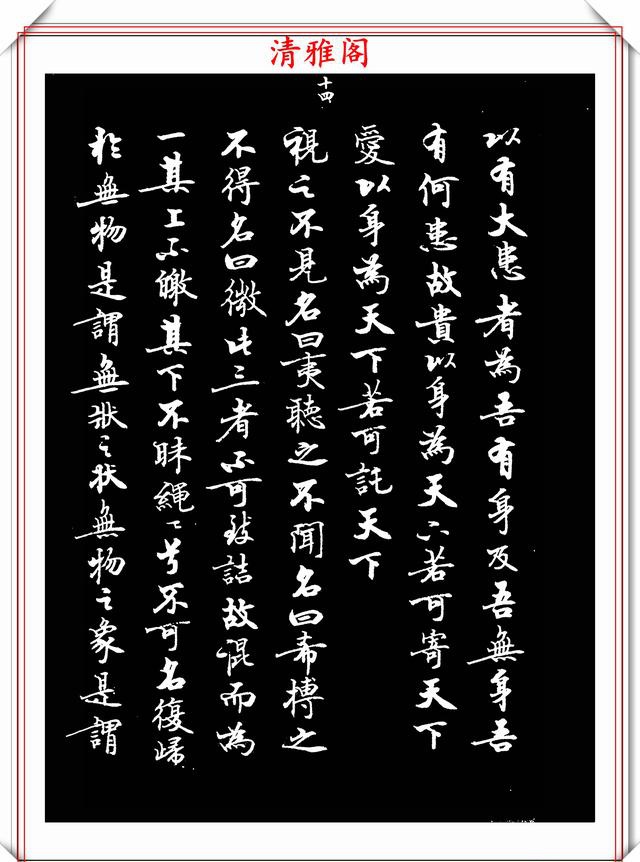 清雅阁
十四
以有大患者為吾有身及吾無身吾
有何患故貴以身為天下若可寄天下
愛以身為天下若可託天下
視之不見名曰夷聽之不聞名曰希摶之
不得名曰微此三者不可致詰故混而為
一其上不皦其下不昧繩〻兮不可名復歸
於無物是謂無狀之狀無物之象是謂